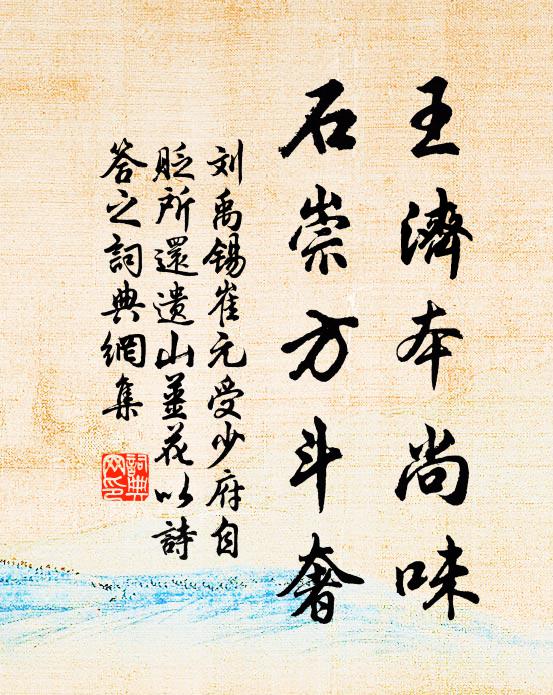 王濟本尚味
石崇方斗奢
刘禹锡崔元受少府自
贬所還遗山薑花以詩
答之詞典網集
詞典网印